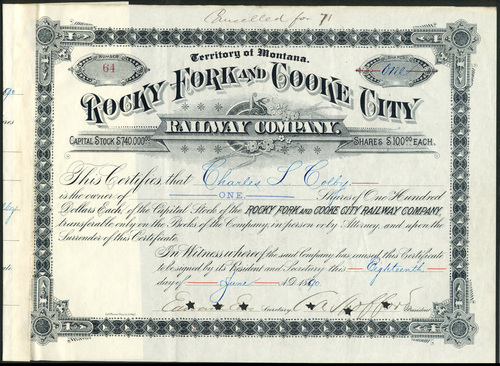 Cancelled for 71
Territory of Montana.
NUMBER
64
SHARES
One
ROCKY FORK AND COOKE CITY
RAILWAY COMPANY.
CAPITAL STOCK $740,000.00
SHARES $100.00 EACH.
This Certifies, that Charles L Colby
is the owner of ONE Shares of One Hundred
Dollars Each, of the Capital Stock of the ROCKY FORK AND COOKE CITY RAILWAY COMPANY,
transferable only on the Books of the Company, in person or by Attorney, and upon the
Surrender of this Certificate.
In Witness whereof the said Company has caused this Certificate
to be signed by its President and Secretary this Eighteenth
day of June A.D. 1890.
Secretary
President